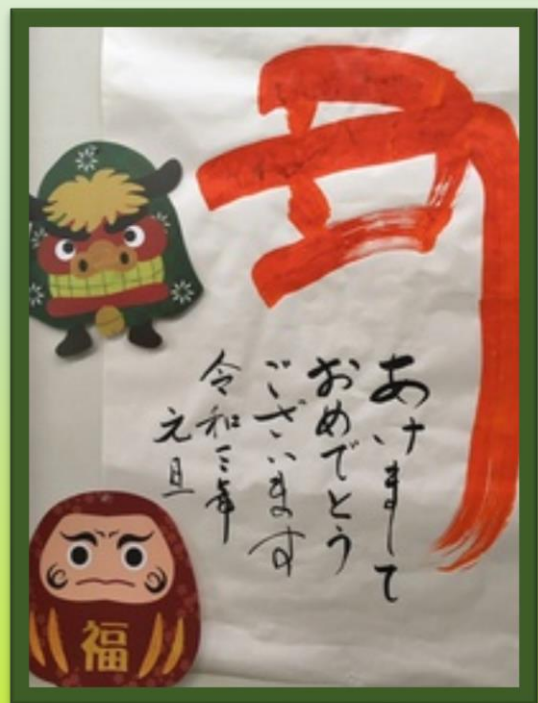 丑
あけまして
おめでとう
ございます
令和三年
元旦
福